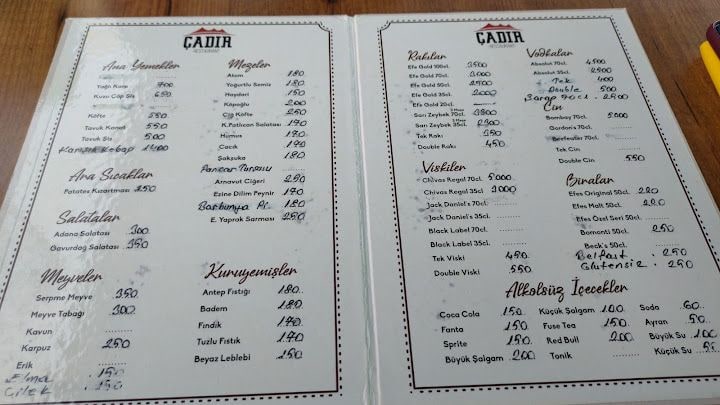 ÇADIR
RESTAURANT
Ana Yemekler
Yağlı Kara 700
Kuzu Çöp Şiş 650
Köfte 550
Tavuk Kanat 550
Tavuk Şiş 500
Karışık Kebap 1400
Ana Sıcaklar
Patates Kızartması 250
Salatalar
Adana Salatası 300
Gavurdağ Salatası 350
Meyveler
Serpme Meyve 350
Meyve Tabağı 300
Kavun ........
Karpuz 250
Erik ........
Elma 150
Çilek 150
Mezeler
Atom 180
Yogurtlu Semiz 180
Haydari 150
Köpoğlu 200
Çiğ Köfte 250
K.Patlıcan Salatası 170
Humus 170
Cacık 170
Şakşuka 180
Pancar Turşusu
Arnavut Ciğeri 290
Ezine Dilim Peynir 170
Barbunya Pl. 180
E. Yaprak Sarması 250
Kuruyemişler
Antep Fıstığı 180
Badem 180
Fındık 170
Tuzlu Fıstık 170
Beyaz Leblebi 150
ÇADIR
RESTAURANT
Rakılar
Efe Gold 100cl. 3500
Efe Gold 70cl. 3000
Efe Gold 50cl. 2500
Efe Gold 35cl. 2000
Efe Gold 20cl. ........
Sarı Zeybek 70cl. 3500
Sarı Zeybek 35cl. 2300
Tek Rakı 350
Double Rakı 450
Viskiler
Chivas Regal 70cl. 5000
Chivas Regal 35cl. 3000
Jack Daniel's 70cl. ........
Jack Daniel's 35cl. ........
Black Label 70cl. ........
Black Label 35cl. ........
Tek Viski 450
Double Viski 550
Vodkalar
Absolut 70cl. 4500
Absolut 35cl. 2500
Tek 400
Double 500
Şarap 70cl. 2500
Cin
Bombay 70cl. 5000
Gordon's 70cl. ........
Beefeater 70cl. ........
Tek Cin ........
Double Cin 550
Biralar
Efes Original 50cl. 220
Efes Malt 50cl. 220
Efes Özel Seri 50cl. ........
Bomonti 50cl. 250
Beck's 50cl. ........
Belfast 250
Glutensiz 250
Alkolsüz İçecekler
Coca Cola 150 Küçük Şalgam 100 Soda 60
Fanta 150 Fuse Tea 150 Ayran 50
Sprite 150 Red Bull 200 Büyük Su 100
Büyük Şalgam 200 Tonik ........ Küçük Su